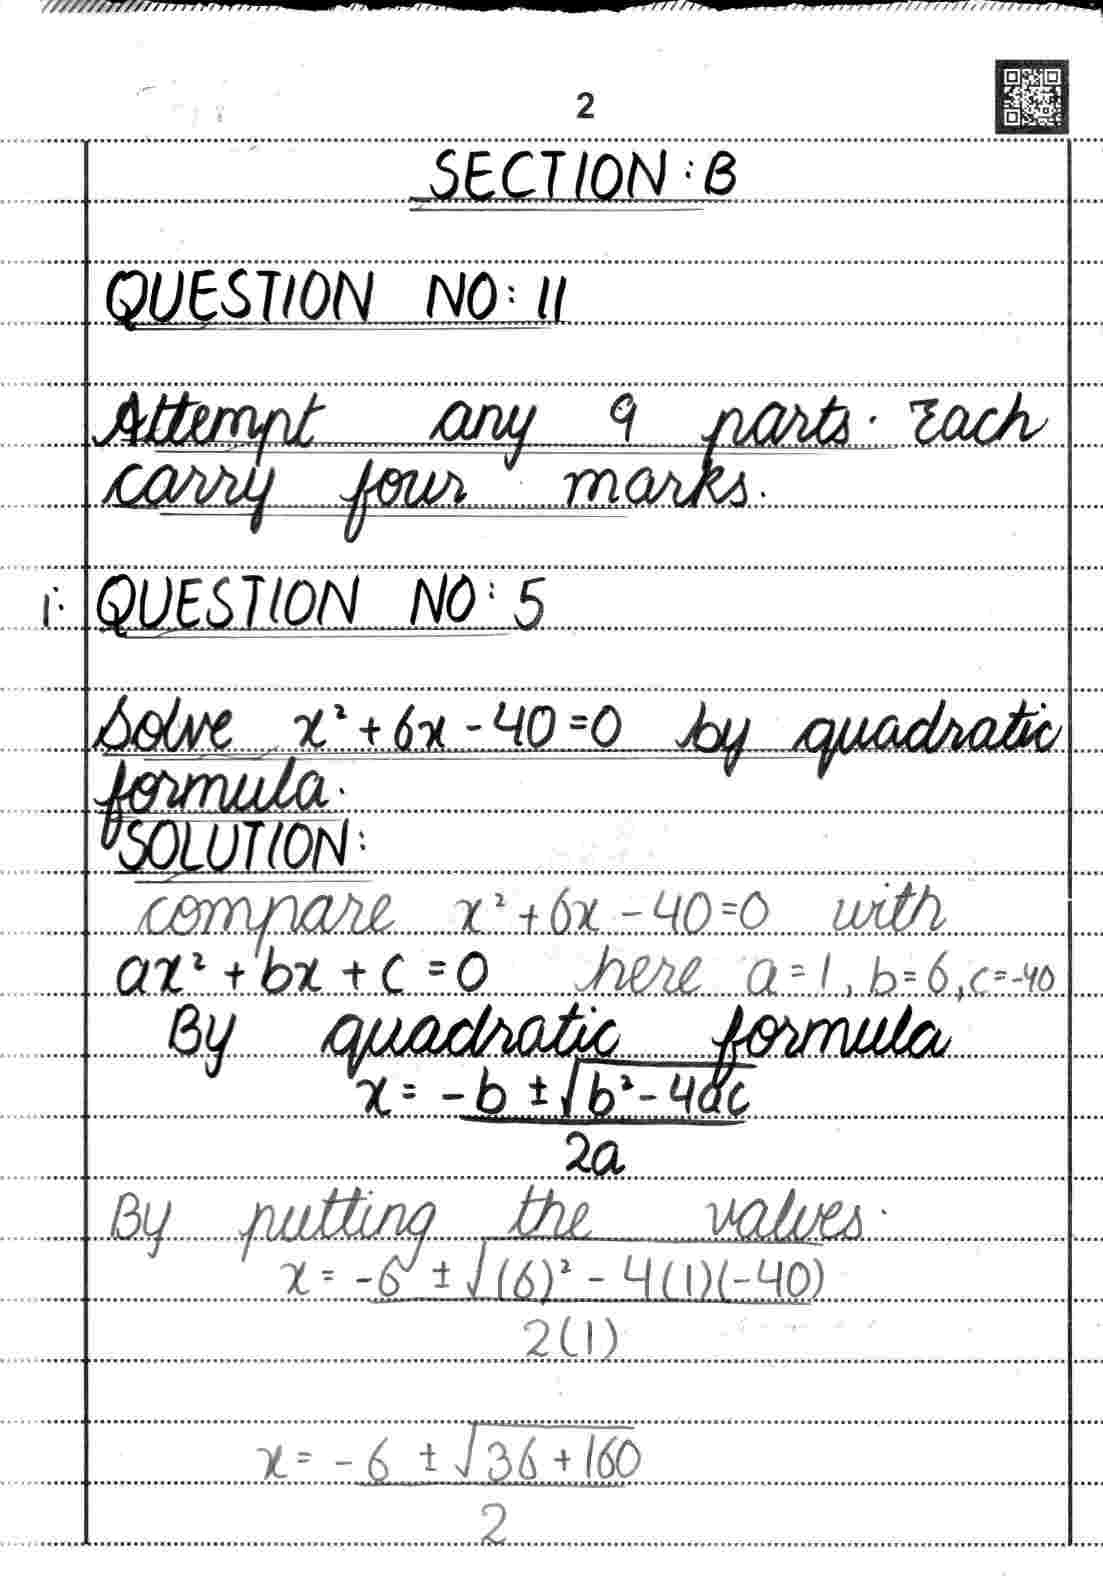 2
SECTION : B
QUESTION NO: 11
Attempt any 9 parts. Each
carry four marks.
i. QUESTION NO: 5
Solve x² + 6x - 40 = 0 by quadratic
formula.
SOLUTION:
compare x² + 6x - 40 = 0 with
ax² + bx + c = 0 here a = 1, b = 6, c = -40
By quadratic formula
x = -b ± √b² - 4ac
2a
By putting the values.
x = -6 ± √(6)² - 4(1)(-40)
2(1)
x = -6 ± √36 + 160
2